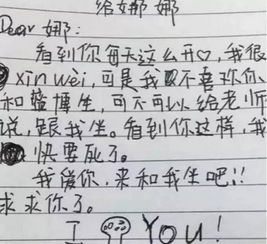 给娜娜
Dear 娜:
看到你每天这么开♡,我很
xin wei,可是我不喜欢你
和 博生,可不可以给老师
说,跟我坐。看到你这样,我
快要死了。
我爱你,来和我坐吧!!
求求你了。
I You!